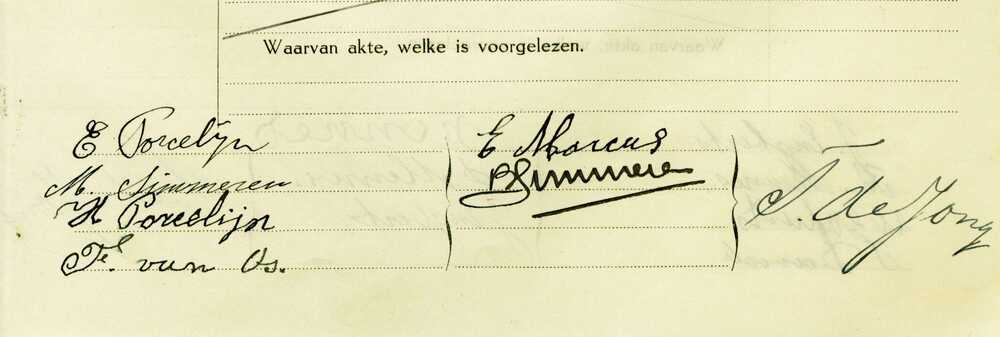 Waarvan akte, welke is voorgelezen.
E Porcelijn
M. Simmeren
H Porcelijn
Fl. van Os.
E Marcus
Simmeren
T. de Jong